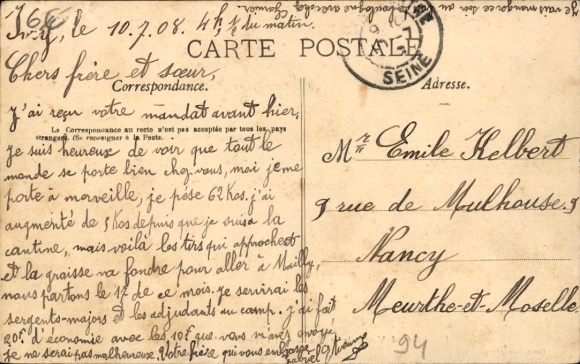 Ivry, le 10.7.08. 4h 1/2 du matin.
CARTE POSTALE
SEINE
Chers frère et sœur,
Correspondance.
Adresse.
J'ai reçu votre mandat avant hier,
La Correspondance au recto n'est pas acceptée par tous les pays
étrangers. (Se renseigner à la Poste.
je suis heureux de voir que tout le
monde se porte bien chez vous, moi je me
porte à merveille, je pèse 62 Kos. j'ai
augmenté de 5 Kos depuis que je suis à la
cantine, mais voila les tirs qui approchent
et la graisse va fondre pour aller à Mailly,
nous partons le 17 de ce mois. je servirai les
sergents-majors et les adjudants au camp. j'ai fait
20f. d'économie avec les 10f que vous m'avez envoyé
je ne serai pas malheureux. Votre frère qui vous embrasse
Mr Emile Kelbert
9 rue de Mulhouse. 9
Nancy
Meurthe-et-Moselle
94